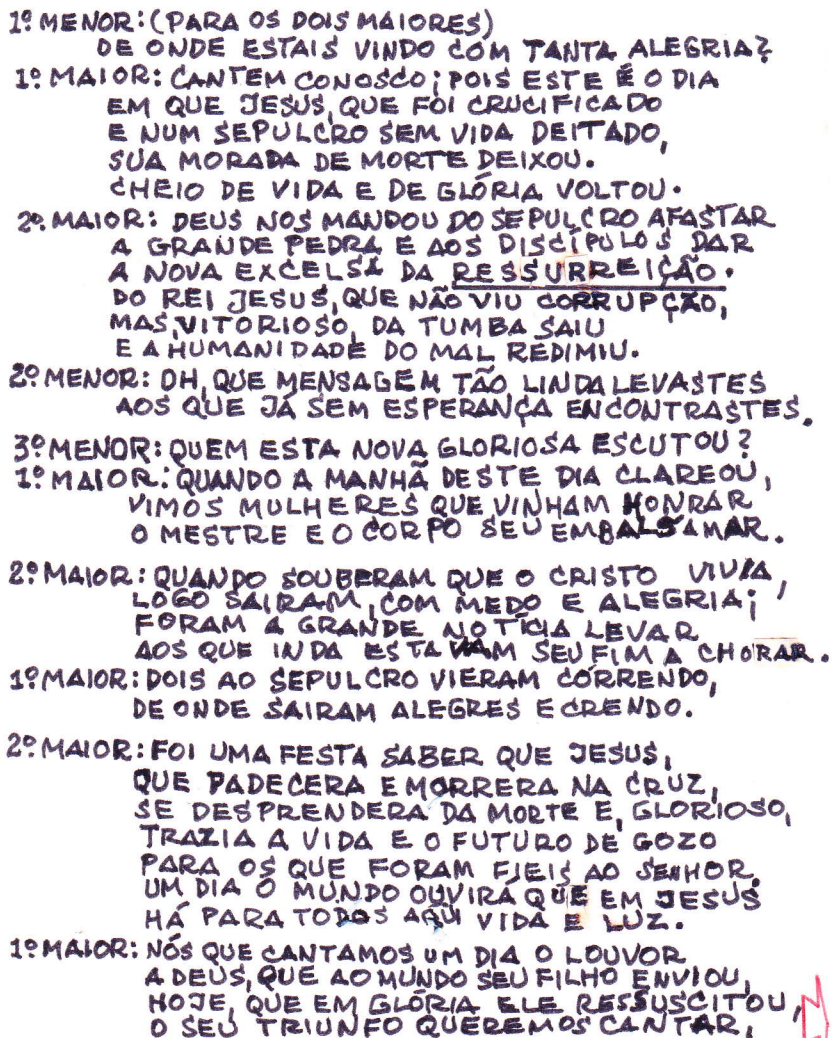 1º MENOR: (PARA OS DOIS MAIORES)
DE ONDE ESTAIS VINDO COM TANTA ALEGRIA?
1º MAIOR: CANTEM CONOSCO; POIS ESTE É O DIA
EM QUE JESUS, QUE FOI CRUCIFICADO
E NUM SEPULCRO SEM VIDA DEITADO,
SUA MORADA DE MORTE DEIXOU.
CHEIO DE VIDA E DE GLÓRIA VOLTOU.
2º MAIOR: DEUS NOS MANDOU DO SEPULCRO AFASTAR
A GRANDE PEDRA E AOS DISCÍPULOS DAR
A NOVA EXCELSA DA RESSURREIÇÃO.
DO REI JESUS, QUE NÃO VIU CORRUPÇÃO,
MAS, VITORIOSO, DA TUMBA SAIU
E A HUMANIDADE DO MAL REDIMIU.
2º MENOR: OH, QUE MENSAGEM TÃO LINDA LEVASTES
AOS QUE JÁ SEM ESPERANÇA ENCONTRASTES.
3º MENOR: QUEM ESTA NOVA GLORIOSA ESCUTOU?
1º MAIOR: QUANDO A MANHÃ DESTE DIA CLAREOU,
VIMOS MULHERES QUE VINHAM HONRAR
O MESTRE E O CORPO SEU EMBALSAMAR.
2º MAIOR: QUANDO SOUBERAM QUE O CRISTO VIVIA,
LOGO SAIRAM, COM MEDO E ALEGRIA;
FORAM A GRANDE NOTÍCIA LEVAR
AOS QUE INDA ESTAVAM SEU FIM A CHORAR.
1º MAIOR: DOIS AO SEPULCRO VIERAM CORRENDO,
DE ONDE SAIRAM ALEGRES E CRENDO.
2º MAIOR: FOI UMA FESTA SABER QUE JESUS,
QUE PADECERA E MORRERA NA CRUZ,
SE DESPRENDERA DA MORTE E, GLORIOSO,
TRAZIA A VIDA E O FUTURO DE GOZO
PARA OS QUE FORAM FIEIS AO SENHOR.
UM DIA O MUNDO OUVIRÁ QUE EM JESUS
HÁ PARA TODOS AQUI VIDA E LUZ.
1º MAIOR: NÓS QUE CANTAMOS UM DIA O LOUVOR
A DEUS, QUE AO MUNDO SEU FILHO ENVIOU,
HOJE, QUE EM GLÓRIA ELE RESSUSCITOU,
O SEU TRIUNFO QUEREMOS CANTAR,